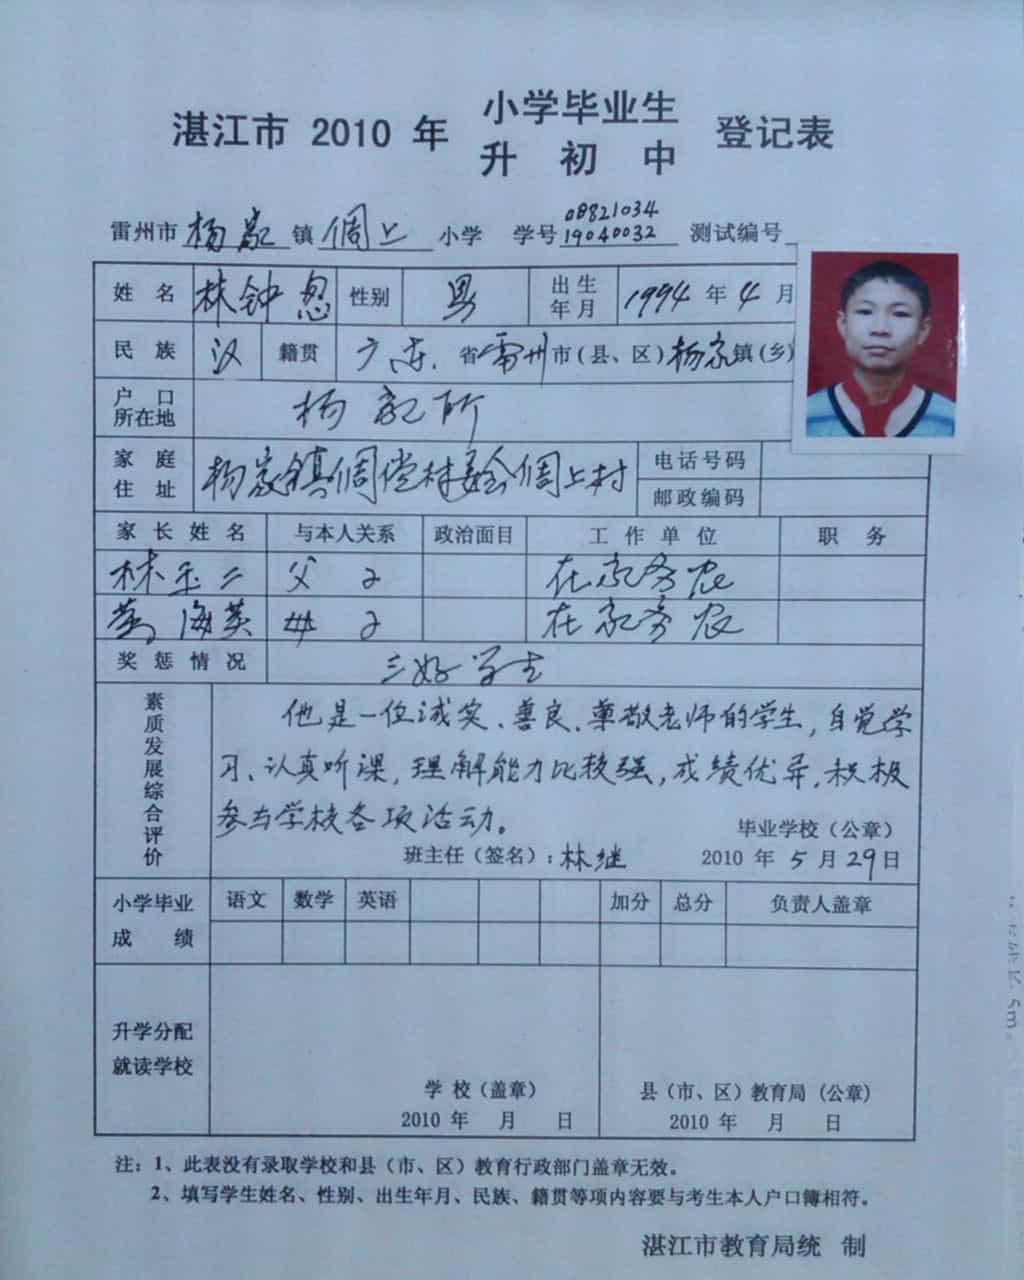 湛江市 2010 年 小学毕业生 登记表
升 初 中
雷州市 杨家 镇 倜上 小学 学号 08821034 19040032 测试编号
姓 名 林钟 性别 男 出生年月 1994 年 4 月
民 族 汉 籍贯 广东 省 雷州 市(县、区) 杨家 镇(乡)
户 口 所在地 杨家所
家 庭 住 址 杨家镇 倜上村 电话号码
邮政编码
家 长 姓 名 与本人关系 政治面目 工 作 单 位 职 务
林玉二 父子 在家务农
黄海英 母子 在家务农
奖 惩 情 况 三好学生
素质发展综合评价
他是一位诚实、善良、尊敬老师的学生,自觉学
习、认真听课,理解能力比较强,成绩优异,积极
参与学校各项活动。
毕业学校(公章)
班主任(签名):林继 2010 年 5 月 29 日
小学毕业 成 绩 语文 数学 英语 加分 总分 负责人盖章
升学分配
就读学校
学 校(盖章) 县(市、区)教育局(公章)
2010 年 月 日 2010 年 月 日
注:1、此表没有录取学校和县(市、区)教育行政部门盖章无效。
2、填写学生姓名、性别、出生年月、民族、籍贯等项内容要与考生本人户口簿相符。
湛江市教育局统 制